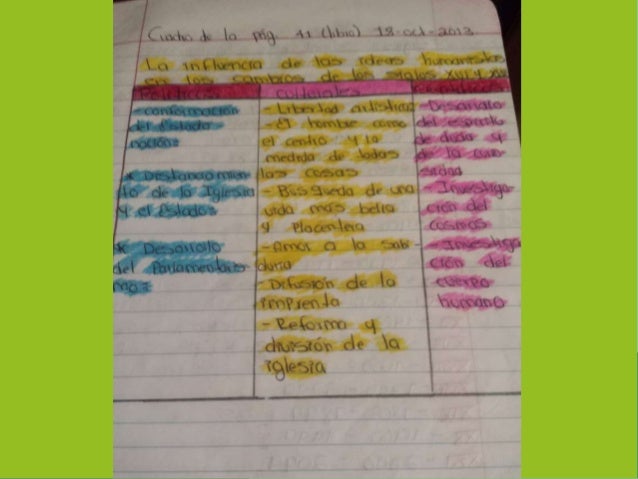 Cuadro de la pág. 41 (libro) 18-oct-2013
La influencia de las ideas humanistas
en los cambios de los siglos XVI y
Políticos
- conformación
del Estado
nación
* Distanciamien
to de la Iglesia
y el Estado
* Desarrollo
del Parlamentaris
mo
Culturales
- Libertad artística
- El hombre como
el centro y la
medida de todas
las cosas
- Búsqueda de una
vida más bella
y placentera
- Amor a la sabi-
duria
- Difusión de la
imprenta
- Reforma y
división de la
iglesia
- Desarrollo
del espíritu
de duda y
de la curio
sidad
- Investiga
ción del
cosmos
- Investiga
ción del
cuerpo
humano